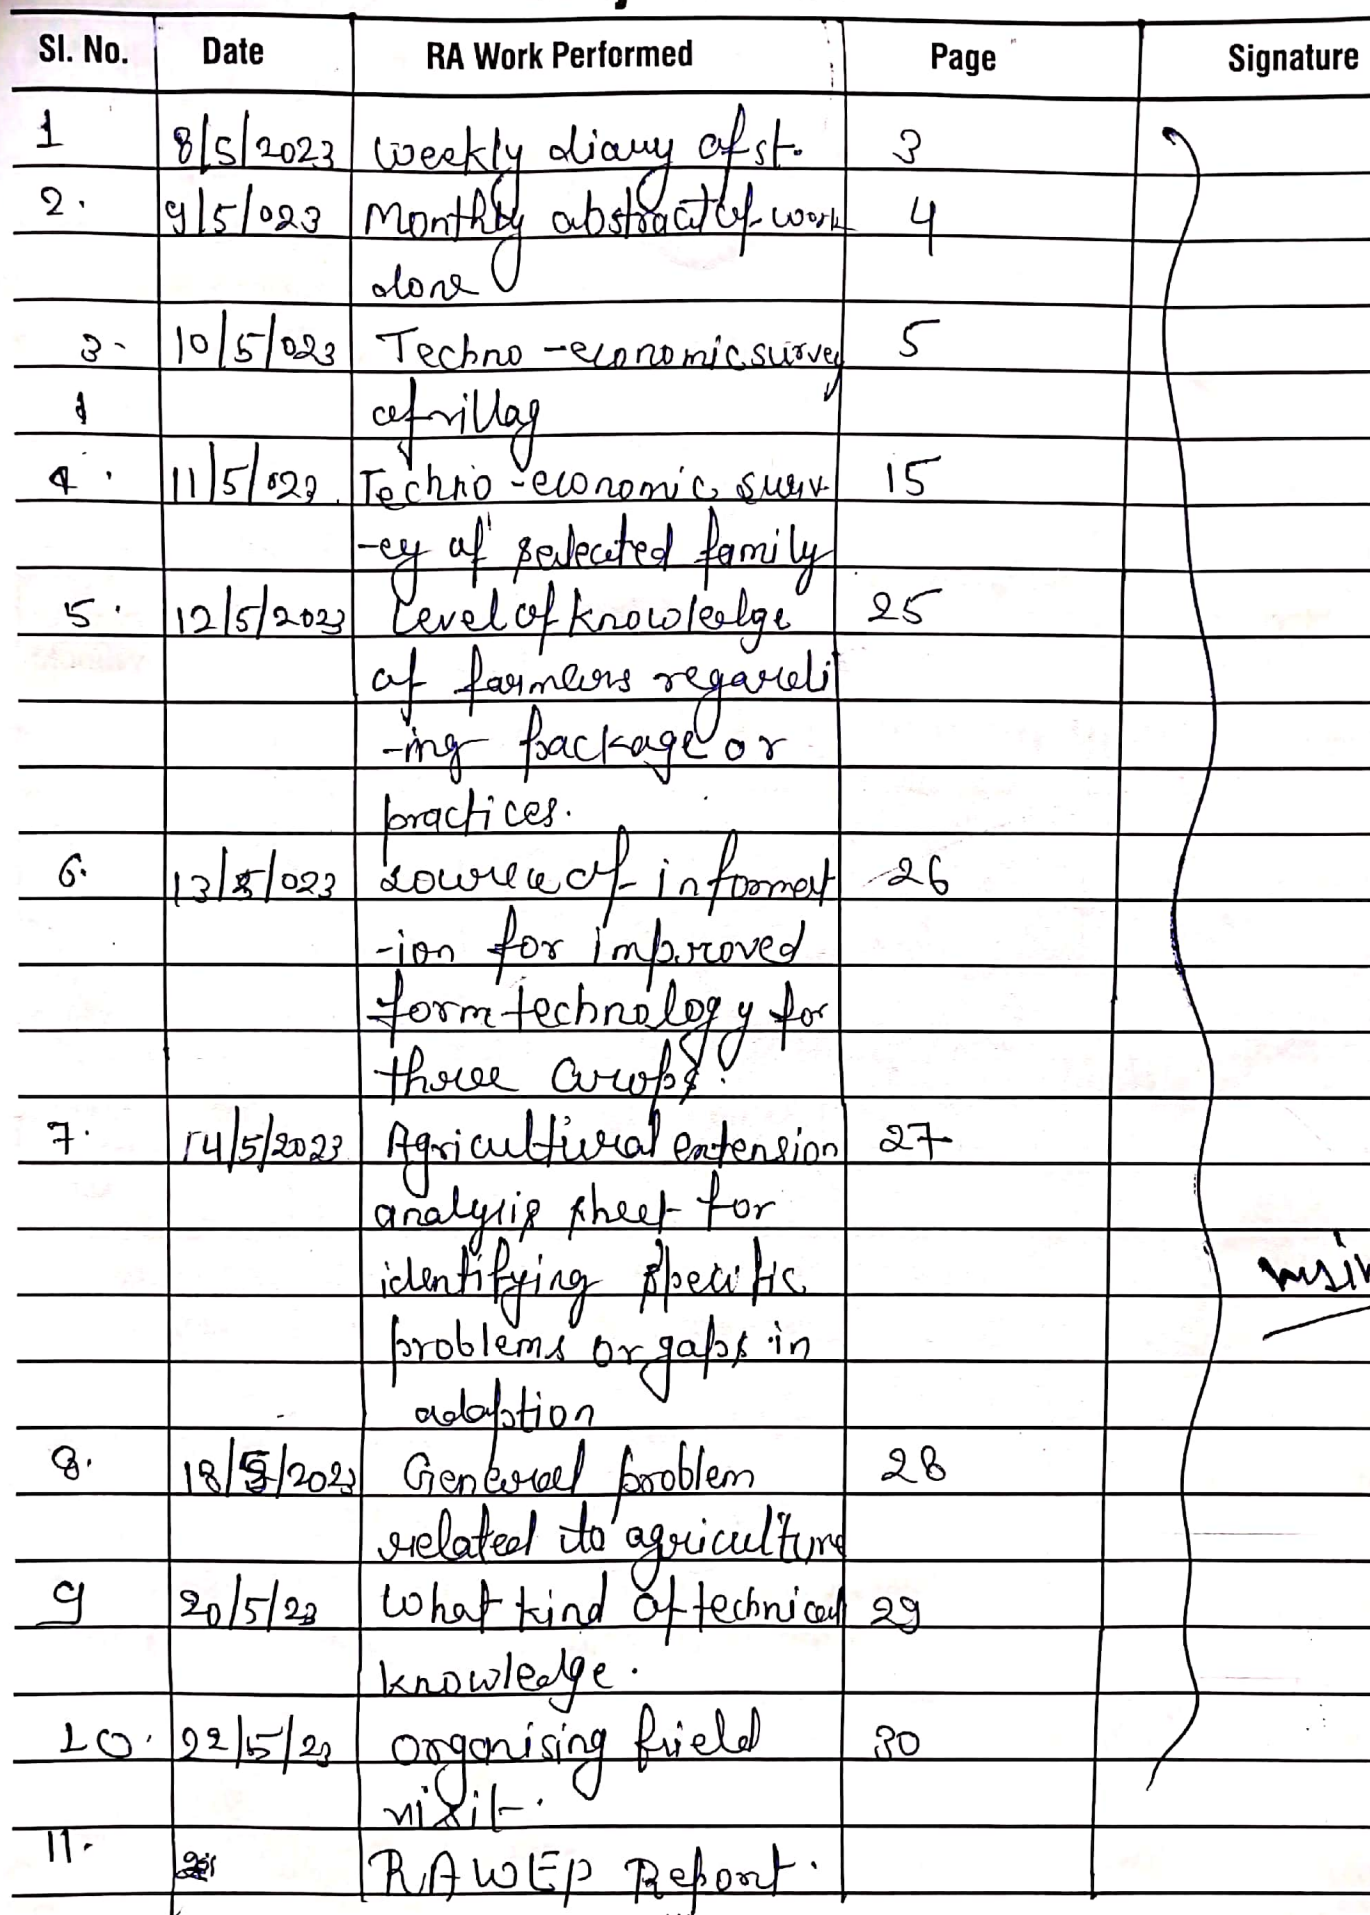 Sl. No. Date RA Work Performed Page Signature
1 8/5/2023 Weekly diary of st. 3
2. 9/5/023 Monthly abstract of work 4
done
3- 10/5/023 Techno-economic survey 5
of villag
4. 11/5/023 Techno-economic surv 15
-ey of selected family
5. 12/5/2023 Level of knowledge 25
of farmers regardi
-ing package or
practices.
6. 13/5/023 source of informat 26
-ion for improved
form technology for
three crops.
7. 14/5/2023 Agricultural extension 27
analysis sheet for
identifying specific
problems or gaps in
adoption
8. 18/5/2023 General problem 28
related to agriculture
9 20/5/23 What kind of technical 29
knowledge.
10. 22/5/23 organising field 30
visit.
11. RAWEP Report.